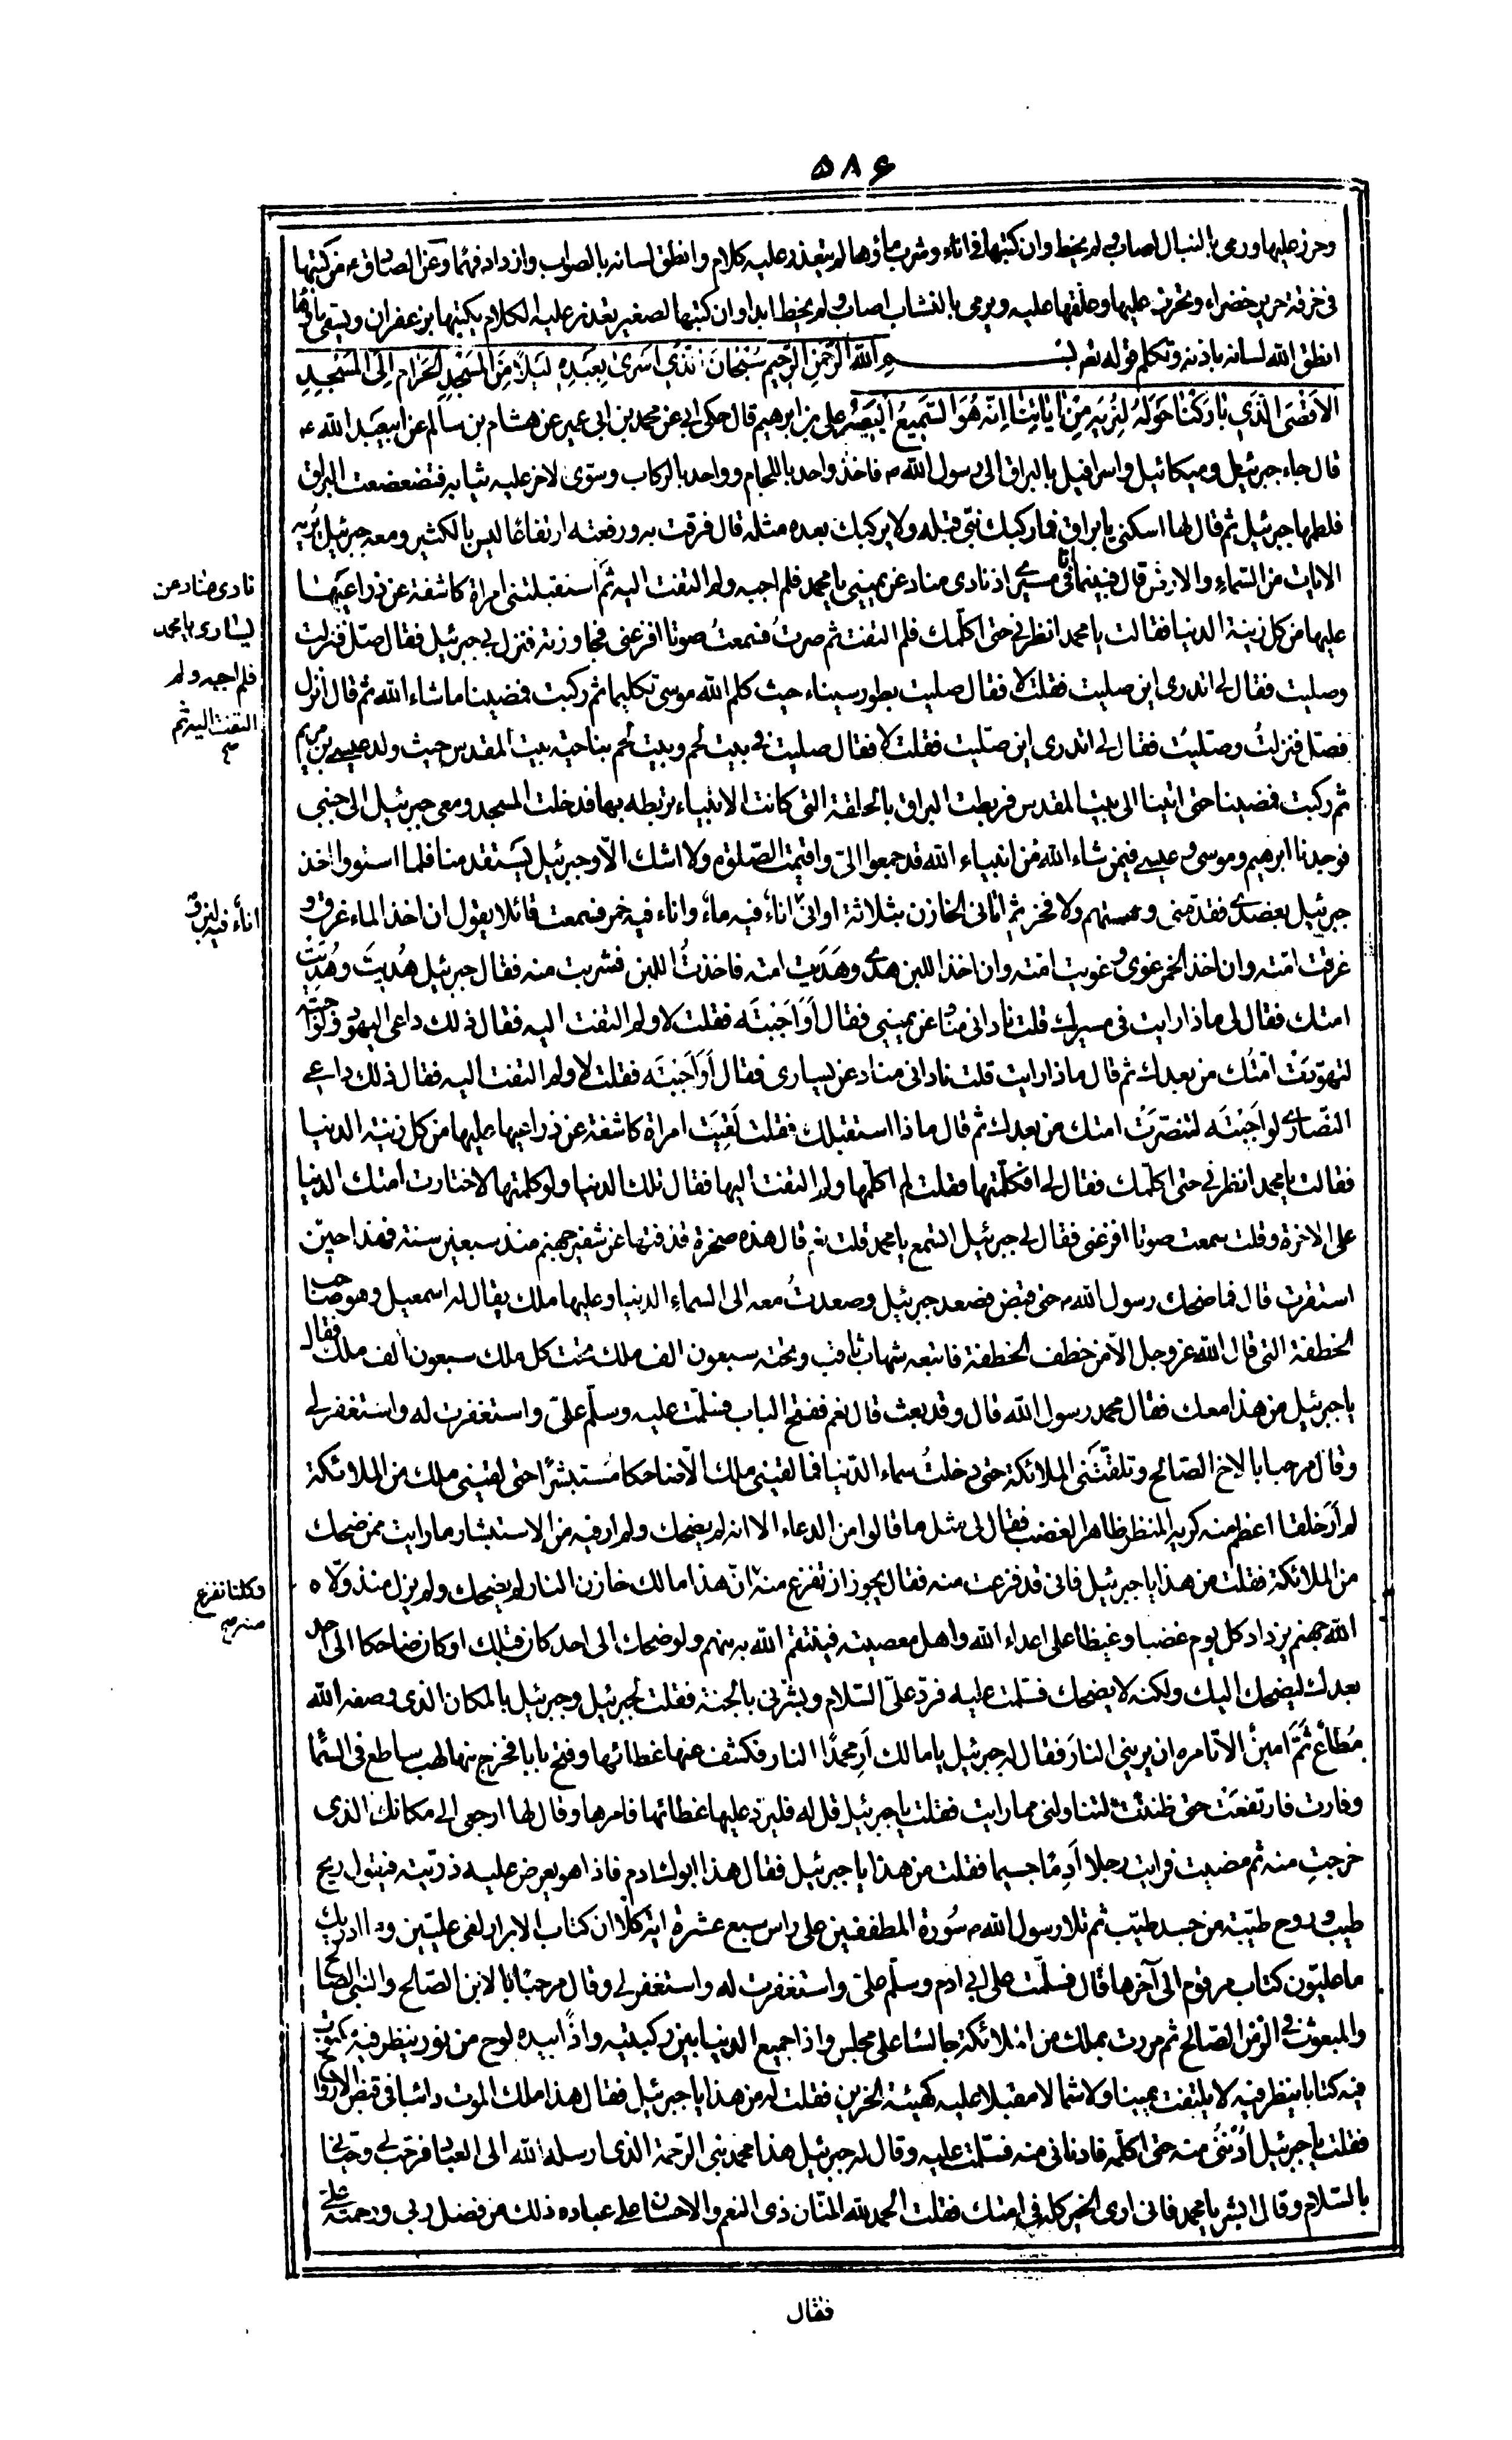 ۵۸۶
وحرز عليها ورمى بالنبال اصاب ولم يخط وان كتبها فى اناء وشرب ماؤها لم يتعذر عليه كلام وانطق لسانه بالصواب وازداد فهما وعن الصادق ع من كتبها
فى خرقة حرير خضراء وتحرز عليها وعلقها عليه ويرمى بالنشاب اصاب ولم يخط ابدا وان كتبها لصغير تعذر عليه الكلام يكتبها بزعفران ويسقى ماؤها
انطق الله لسانه باذنه وتكلم قوله تعم بسم الله الرحمن الرحيم سُبْحانَ الَّذي اَسْرى بِعَبْدِهِ لَيْلاً مِنَ الْمَسْجِدِ الْحَرامِ اِلَى الْمَسْجِدِ
الْاَقْصَى الَّذي بارَكْنا حَوْلَهُ لِنُرِيَهُ مِنْ اياتِنا اِنَّهُ هُوَ السَّميعُ الْبَصيرُ على بن ابرهيم قال حكى ابى عن محمد بن ابى عمير عن هشام بن سالم عن ابيعبد الله ع
قال جاء جبرئيل وميكائيل واسرافيل بالبراق الى رسول الله ص فاخذ واحد باللجام وواحد بالركاب وسوى لاخر عليه ثيابه فتضعضعت البراق
فلطمها جبرئيل ثم قال لها اسكنى يا براق فما ركبك نبى قبله ولا يركبك بعده مثله قال فرقت به ورفعته ارتفاعا ليس بالكثير ومعه جبرئيل يُريه
الايات من السماء والارض قال فبينما انا فى مسيرى اذ نادى مناد عن يمينى يا محمد فلم اجبه ولم التفت اليه ثم استقبلتنى امراة كاشفة عن ذراعيها
نادى مناد عن
يسارى يا محمد
فلم اجبه ولم
التفت اليه ثم
صح
عليها من كل زينة الدنيا فقالت يا محمد انظرنى حتى اكلمك فلم التفت ثم صرتُ فسمعتُ صوتا افزعنى فجاوزته فنزل بى جبرئيل فقال صل فنزلت
وصليت فقال لى اتدرى اين صليت فقلت لا فقال صليت بطور سيناء حيث كلم الله موسى تكليما ثم ركبت فمضينا ما شاء الله ثم قال انزل
فصل فنزلتُ وصليتُ فقال لى اتدرى اين صليت فقلت لا فقال صليت فى بيت لحم وبيت لحم بناحية بيت المقدس حيث ولد عيسى بن مريم
ثم ركبت فمضينا حتى اتينا الى بيت المقدس فربطت البراق بالحلقة التى كانت الانبياء يربطه بها فدخلت المسجد ومعى جبرئيل الى جنبى
فوجدنا ابرهيم وموسى وعيسى فيمن شاء الله من انبياء الله قد جمعوا الىّ واقيمت الصلوة ولا اشك الا وجبرئيل يستقدمنا فلما استووا اخذ
جبرئيل بعضدى فقدمنى واممتهم ولا فخر ثم اتانى الخازن بثلاثة اوانى اناء فيه ماء واناء فيه خمر فسمعت قائلا يقول ان اخذ الماء غرق و
اناء فيه لبن و
غرقت امته وان اخذ الخمر غوى وغويت امته وان اخذ اللبن هدى وهديت امته فاخذتُ اللبن فشربت منه فقال جبرئيل هُديتَ وهُديت
امتك فقال لى ماذا رايت فى مسيرك قلت نادانى مناد عن يمينى فقال اَوَاَجَبْتَه فقلت لا ولم التفت اليه فقال ذلك داعى اليهود ولو اجبته
لتهودَتْ امتُك من بعدك ثم قال ماذا رايت قلت نادانى مناد عن يسارى فقال اَوَاَجَبْتَه فقلت لا ولم التفت اليه فقال ذلك داعى
النصارى لو اَجَبْتَه لتنصّرَتْ امتك من بعدك ثم قال ماذا استقبلك فقلت لَقِيَت امراة كاشفة عن ذراعيها عليها من كل زينة الدنيا
فقالت يا محمد انظرنى حتى اكلمك فقال لى افكلّمتها فقلت لم اكلّمها ولم التفت اليها فقال تلك الدنيا ولو كلمتها لاختارت امتك الدنيا
على الاخرة وقلت سمعت صوتا افزعنى فقال لى جبرئيل اتسمع يا محمد قلت نعم قال هذه صخرة قذفتها عن شفير جهنم منذ سبعين سنة فهذا حين
استقرت قال فما ضحك رسول الله ص حتى قبض فصعد جبرئيل وصعدتُ معه الى السماء الدنيا وعليها ملك يقال له اسمعيل وهو صاحب
الخطفة التى قال الله عز وجل الا من خطف الخطفة فاتبعه شهاب ثاقب وتحته سبعون الف ملك تحت كل ملك سبعون الف ملك فقال
يا جبرئيل من هذا معك فقال محمد رسول الله قال وقد بعث قال نعم ففتح الباب فسلمت عليه وسلّم علىّ واستغفرت له واستغفر لى
وقال مرحبا بالاخ الصالح وتلقّتنى الملائكة حتى دخلتُ سماء الدنيا فما لقينى ملك الا ضاحكا مُستبشرًا حتى لقينى ملك من الملائكة
لم اَرَ خلقا اعظم منه كريه المنظر ظاهر الغضب فقال لى مثل ما قالوا من الدعاء الا انه لم يضحك ولم ار فيه من الاستبشار ما رايت ممن ضحك
من الملائكة فقلت من هذا يا جبرئيل فانى قد فزعت منه فقال يجوز ان تفزع منه ان هذا مالك خازن النار لم يضحك ولم يزل منذ ولّاه
وكلنا نفزع
منه صح
الله جهنم يزداد كل يوم غضبا وغيظا على اعداء الله واهل معصيته فينتقم الله به منهم ولو ضحك الى احد كان قبلك او كان ضاحكا الى احد
بعدك ليضحك اليك ولكنه لا يضحك فسلمت عليه فردّ علىّ السلام وبشرنى بالجنة فقلت لجبرئيل وجبرئيل بالمكان الذى وصفه الله
مُطاعٌ ثَمَّ امينٌ الا تامره ان يرينى النارَ فقال له جبرئيل يا مالك اَرِ محمدًا النار فكشف عنها غطائها وفتح بابا فخرج منها لهب ساطع فى السماء
وفارت فارتفعَتْ حتى ظننتُ لتناولنى مما رايت فقلت يا جبرئيل قل له فليرد عليها غطائها فامرها وقال لها ارجعى الى مكانك الذى
خرجتِ منه ثم مضيت فرايت رجلا اَدِمًا جسيما فقلت من هذا يا جبرئيل فقال هذا ابوك ادم فاذا هو يعرض عليه ذريّته فيقول ريح
طيب وروح طيّبة من جسد طيّب ثم تلا رسول الله ص سُورة المطففين على راس سبع عشرة اية كلا ان كتاب الابرار لفى عليّين وما ادريك
ما عليّون كتاب مرقوم الى آخرها قال فسلّمت على ابى ادم وسلّم علىّ واستغفرت له واستغفر لى وقال مرحبًا بالابن الصّالح والنبى الصالح
والمبعوث فى الزمن الصّالح ثم مررت بملك من الملائكة جالسًا على مجلس واذا جميع الدنيا بين ركبتيه واذا بيده لوح من نور ينظر فيه مكتوب
فيه كتابا ينظر فيه لا يلتفت يمينا ولا شمالا مقبلا عليه كهيئة الحزين فقلت له من هذا يا جبرئيل فقال هذا ملك الموت دائبا فى قبض الارواح
فقلت يا جبرئيل اَدْنِنى منه حتى اكلّمه فادنانى منه فسلّمت عليه وقال له جبرئيل هذا محمد نبى الرحمة الذى ارسله الله الى العباد فرحّب لى وحيّانى
بالسّلام وقال ابشر يا محمد فانى ارى الخير كله فى امتك فقلت الحمد لله المنّان ذى النعم والاحسان على عباده ذلك من فضل ربى ورحمته علىّ
فقال